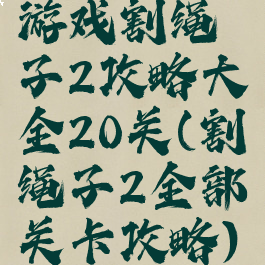 游戏割绳
子2攻略大
全20关(割
绳子2全部
关卡攻略)